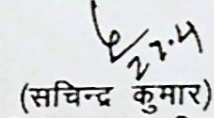 27.4
(सचिन्द्र कुमार)